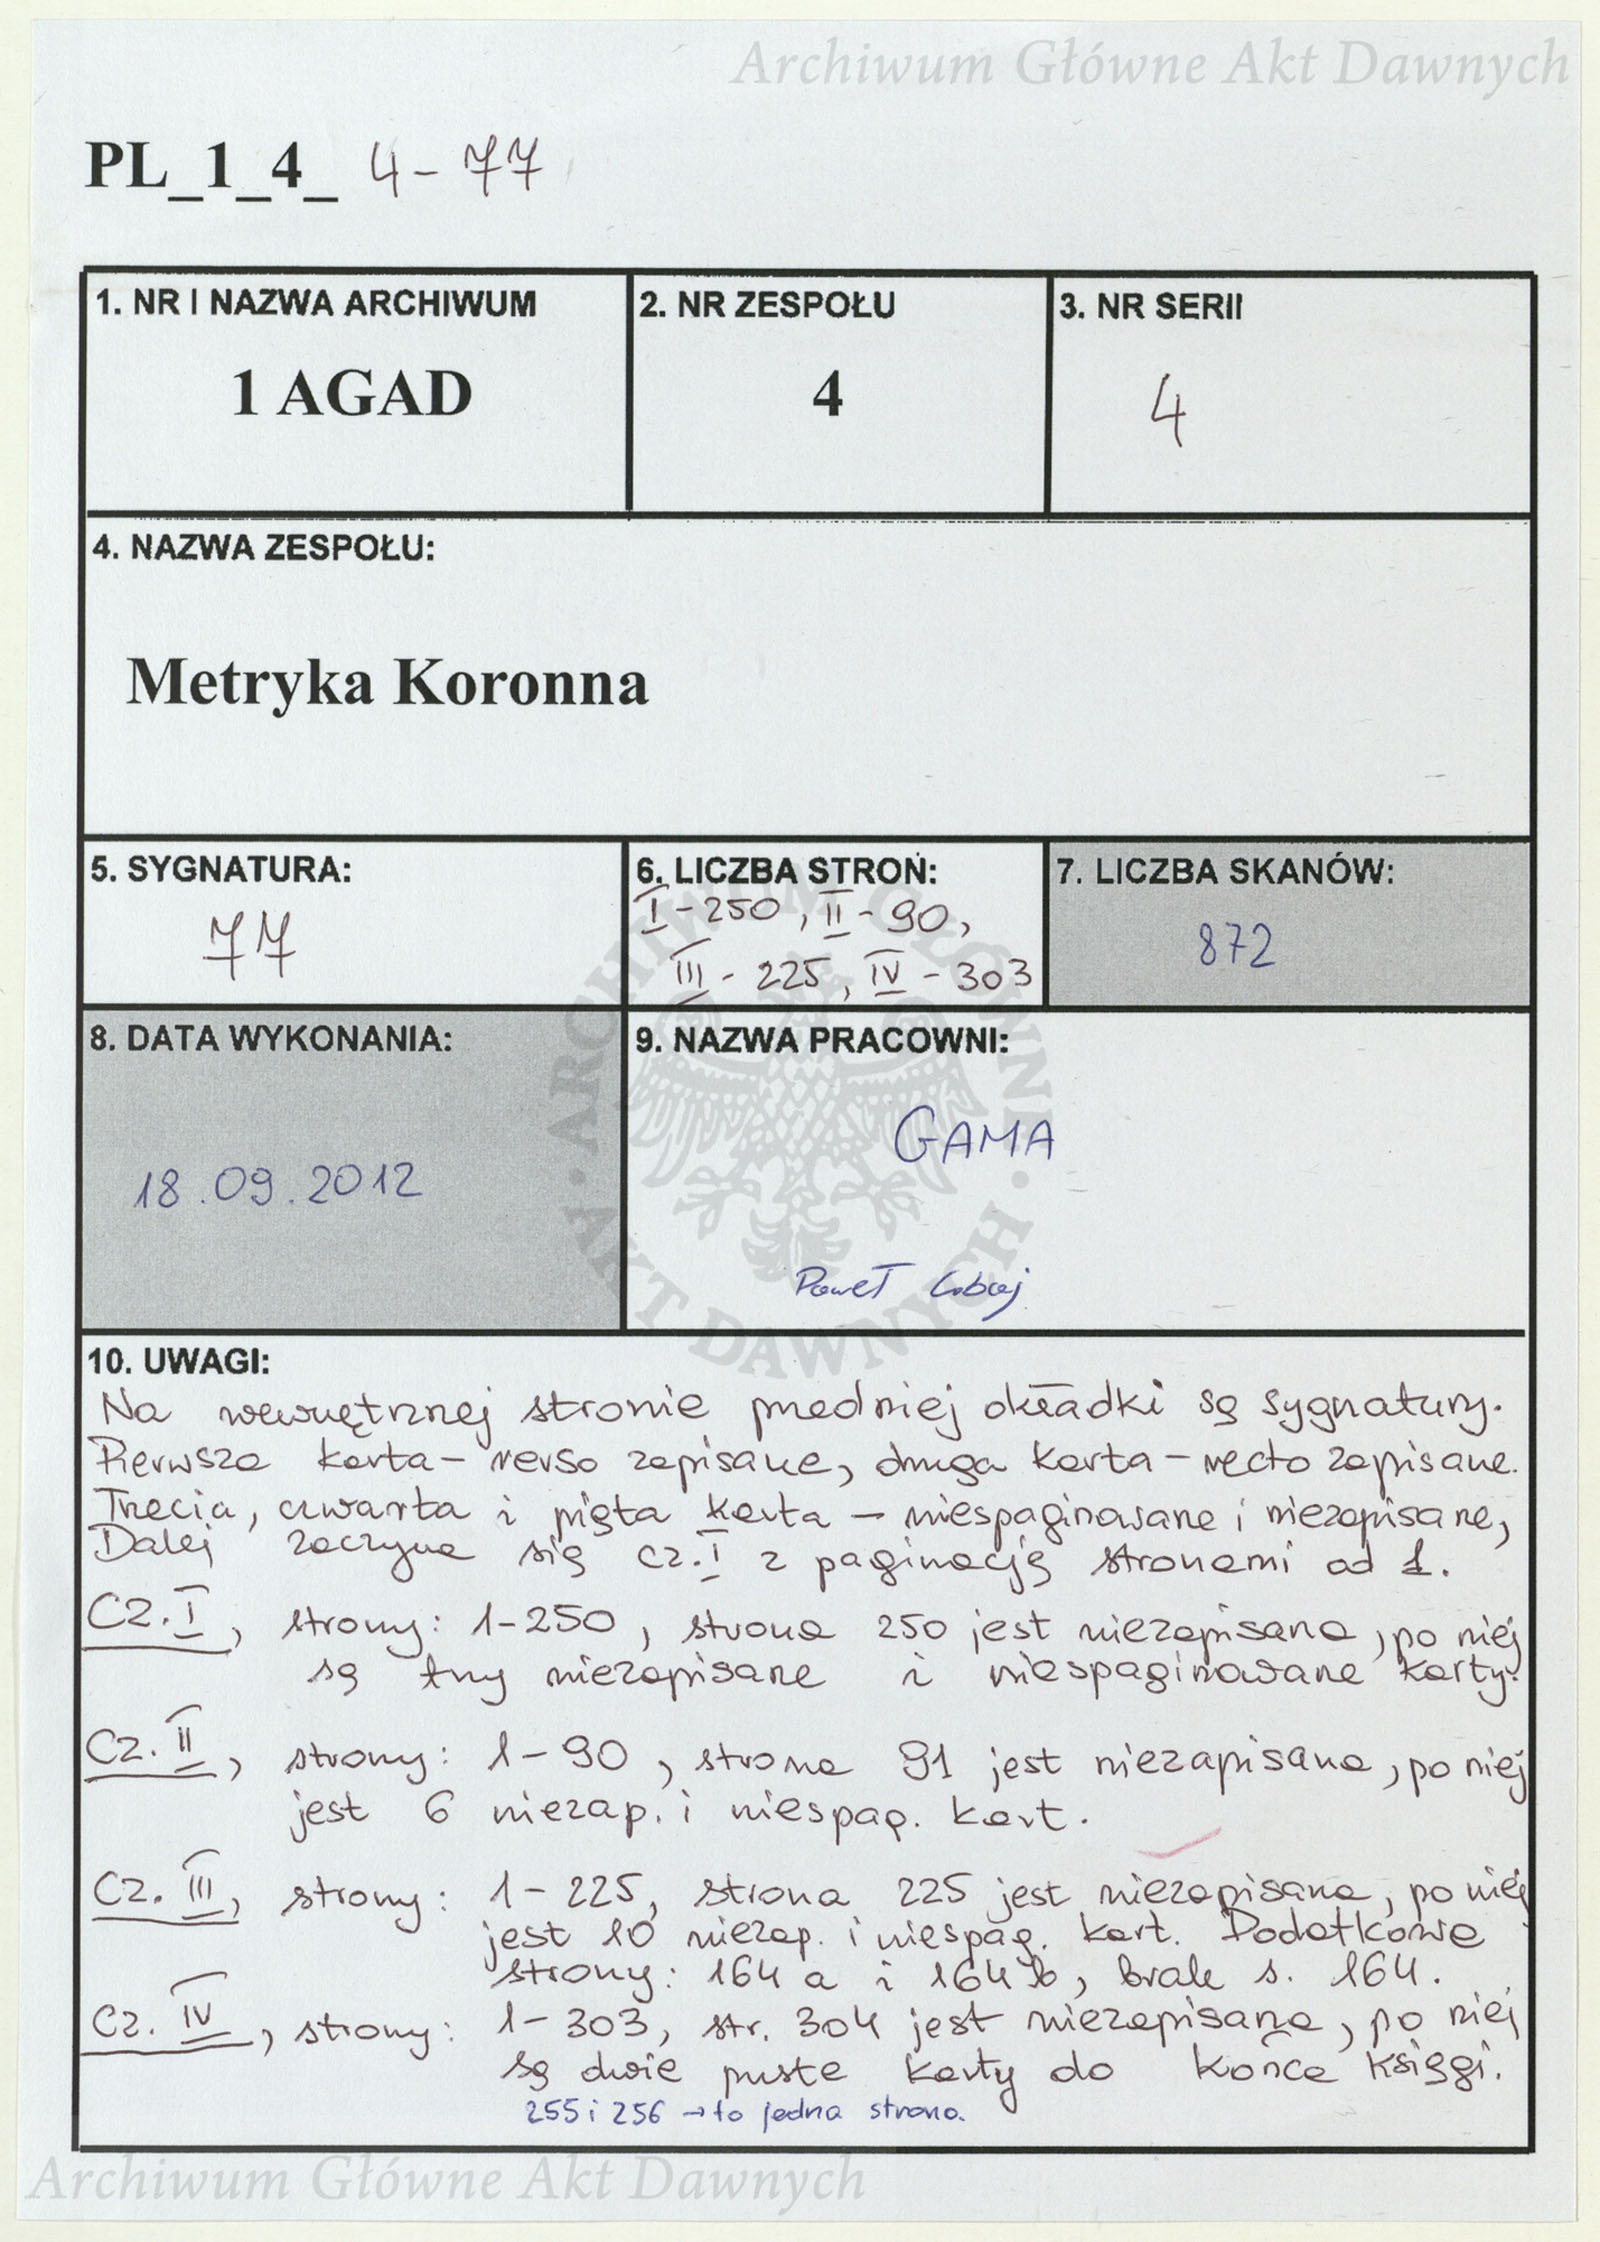 Archiwum Główne Akt Dawnych
PL_1_4_ 4-77
1. NR I NAZWA ARCHIWUM
1 AGAD
2. NR ZESPOŁU
4
3. NR SERII
4
4. NAZWA ZESPOŁU:
Metryka Koronna
5. SYGNATURA:
77
6. LICZBA STRON:
I-250, II-90,
III-225, IV-303
7. LICZBA SKANÓW:
872
8. DATA WYKONANIA:
18.09.2012
9. NAZWA PRACOWNI:
GAMA
Paweł
ARCHIWUM GŁÓWNE · AKT DAWNYCH ·
10. UWAGI:
Na wewnętrznej stronie przedniej okładki są sygnatury.
Pierwsza karta - verso zapisane, druga karta - recto zapisane.
Trzecia, czwarta i piąta karta - niespaginowane i niezapisane,
Dalej zaczyna się cz. I z paginacją stronami od 1.
Cz. I, strony: 1-250, strona 250 jest niezapisana, po niej
są trzy niezapisane i niespaginowane karty.
Cz. II, strony: 1-90, strona 91 jest niezapisana, po niej
jest 6 niezap. i niespag. kart.
Cz. III, strony: 1-225, strona 225 jest niezapisana, po niej
jest 10 niezap. i niespag. kart. Dodatkowe
strony: 164 a i 164 b, brak s. 164.
Cz. IV, strony: 1-303, str. 304 jest niezapisana, po niej
są dwie puste karty do końca księgi.
255 i 256 → to jedna strona.
Archiwum Główne Akt Dawnych